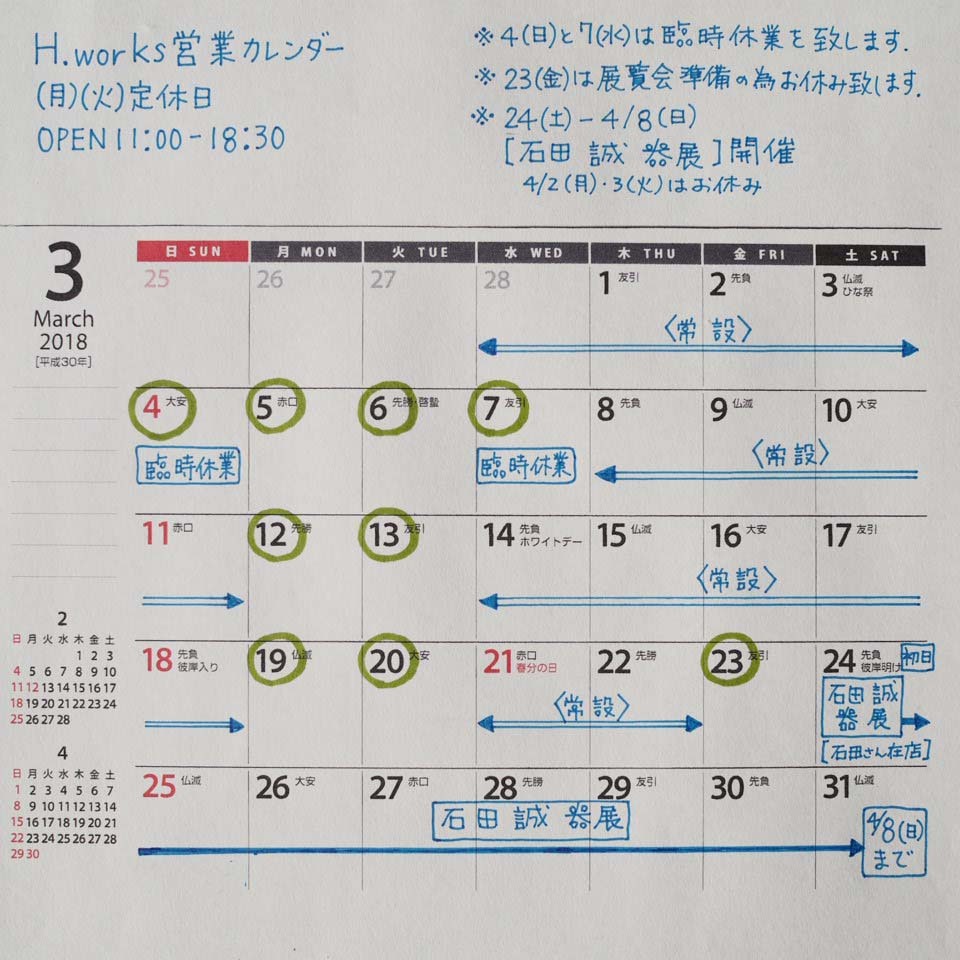 H.works営業カレンダー
(月)(火)定休日
OPEN 11:00-18:30
※ 4(日)と7(水)は臨時休業を致します.
※ 23(金)は展覧会準備の為お休み致します.
※ 24(土)-4/8(日)
[石田 誠 器展]開催
4/2(月)・3(火)はお休み
3
March
2018
[平成30年]
日 SUN 月 MON 火 TUE 水 WED 木 THU 金 FRI 土 SAT
25 26 27 28 1 友引 2 先負 3 仏滅
ひな祭
〈常設〉
4 大安 5 赤口 6 先勝・啓蟄 7 友引 8 先負 9 仏滅 10 大安
臨時休業 臨時休業 〈常設〉
11 赤口 12 先勝 13 友引 14 先負 15 仏滅 16 大安 17 友引
ホワイトデー
〈常設〉
18 先負 19 仏滅 20 大安 21 赤口 22 先勝 23 友引 24 先負 初日
彼岸入り 春分の日 彼岸明け
〈常設〉 石田 誠
器展
[石田さん在店]
25 仏滅 26 大安 27 赤口 28 先勝 29 友引 30 先負 31 仏滅
石田 誠 器展 4/8(日)
まで
2
日 月 火 水 木 金 土
1 2 3
4 5 6 7 8 9 10
11 12 13 14 15 16 17
18 19 20 21 22 23 24
25 26 27 28
4
日 月 火 水 木 金 土
1 2 3 4 5 6 7
8 9 10 11 12 13 14
15 16 17 18 19 20 21
22 23 24 25 26 27 28
29 30